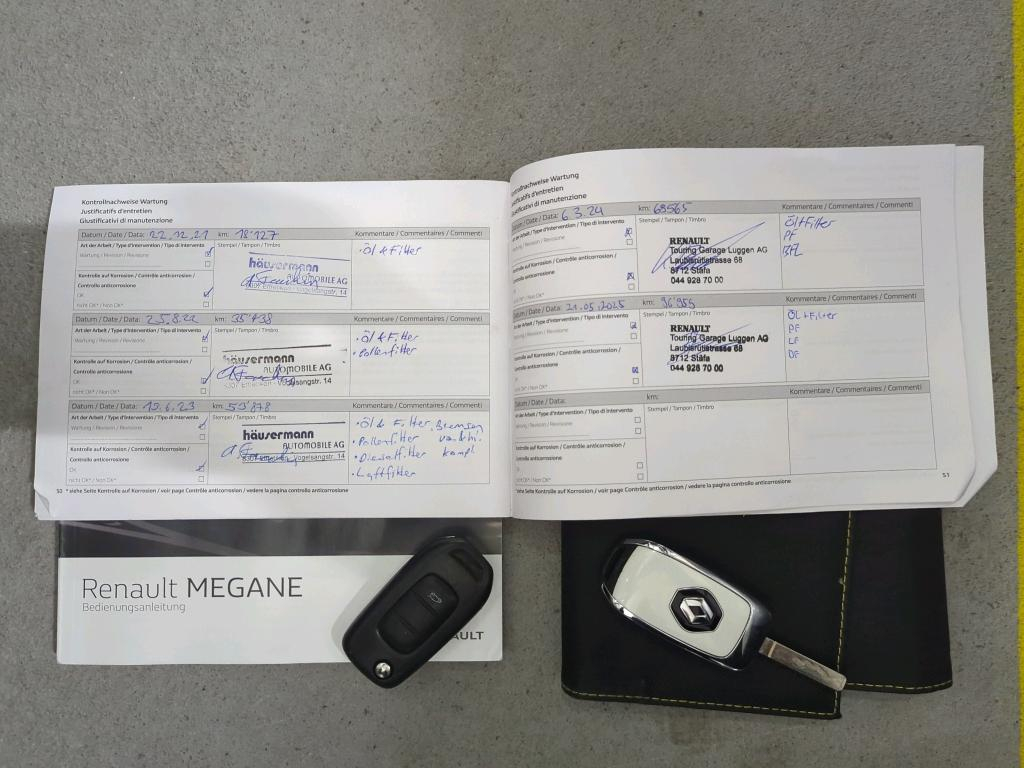 Kontrollnachweise Wartung
Justificatifs d'entretien
Giustificativi di manutenzione
Datum / Date / Data: 22.12.21 km: 18'127 Kommentare / Commentaires / Commenti
Art der Arbeit / Type d'intervention / Tipo di intervento
Wartung / Revision / Revisione
Stempel / Tampon / Timbro
häusermann
AUTOMOBILE AG
8307 Effretikon · Vogelsangstr. 14
• Öl & Filter
Kontrolle auf Korrosion / Contrôle anticorrosion /
Controllo anticorrosione
OK
nicht OK* / Non OK*
Datum / Date / Data: 25.8.22 km: 35'438 Kommentare / Commentaires / Commenti
Art der Arbeit / Type d'intervention / Tipo di intervento
Wartung / Revision / Revisione
Stempel / Tampon / Timbro
häusermann
AUTOMOBILE AG
Vogelsangstr. 14
• Öl & Filter
• Pollenfilter
Kontrolle auf Korrosion / Contrôle anticorrosion /
Controllo anticorrosione
OK
nicht OK* / Non OK*
Datum / Date / Data: 19.6.23 km: 59'878 Kommentare / Commentaires / Commenti
Art der Arbeit / Type d'intervention / Tipo di intervento
Wartung / Revision / Revisione
Stempel / Tampon / Timbro
häusermann
AUTOMOBILE AG
Vogelsangstr. 14
• Öl & Filter
• Pollenfilter
• Dieselfilter
• Luftfilter
Bremsen
kompl.
Kontrolle auf Korrosion / Contrôle anticorrosion /
Controllo anticorrosione
OK
nicht OK* / Non OK*
50 * siehe Seite Kontrolle auf Korrosion / voir page Contrôle anticorrosion / vedere la pagina controllo anticorrosione
Kontrollnachweise Wartung
Justificatifs d'entretien
Giustificativi di manutenzione
Datum / Date / Data: 6.3.24 km: 69565 Kommentare / Commentaires / Commenti
Art der Arbeit / Type d'intervention / Tipo di intervento
Wartung / Revision / Revisione
Stempel / Tampon / Timbro
RENAULT
Touring Garage Luggen AG
Laubisrütistrasse 68
8712 Stäfa
044 928 70 00
Öl+Filter
PF
BFL
Kontrolle auf Korrosion / Contrôle anticorrosion /
Controllo anticorrosione
OK
nicht OK* / Non OK*
Datum / Date / Data: 21.05.2025 km: 96'955 Kommentare / Commentaires / Commenti
Art der Arbeit / Type d'intervention / Tipo di intervento
Wartung / Revision / Revisione
Stempel / Tampon / Timbro
RENAULT
Touring Garage Luggen AG
Laubisrütistrasse 68
8712 Stäfa
044 928 70 00
Öl+Filter
PF
LF
DF
Kontrolle auf Korrosion / Contrôle anticorrosion /
Controllo anticorrosione
OK
nicht OK* / Non OK*
Datum / Date / Data: km: Kommentare / Commentaires / Commenti
Art der Arbeit / Type d'intervention / Tipo di intervento
Wartung / Revision / Revisione
Stempel / Tampon / Timbro
Kontrolle auf Korrosion / Contrôle anticorrosion /
Controllo anticorrosione
OK
nicht OK* / Non OK*
*siehe Seite Kontrolle auf Korrosion / voir page Contrôle anticorrosion / vedere la pagina controllo anticorrosione 51
Renault MEGANE
Bedienungsanleitung
AULT